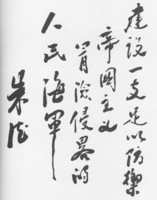 建设一支足以防禦
帝国主义
冒险侵略的
人民海军
朱德